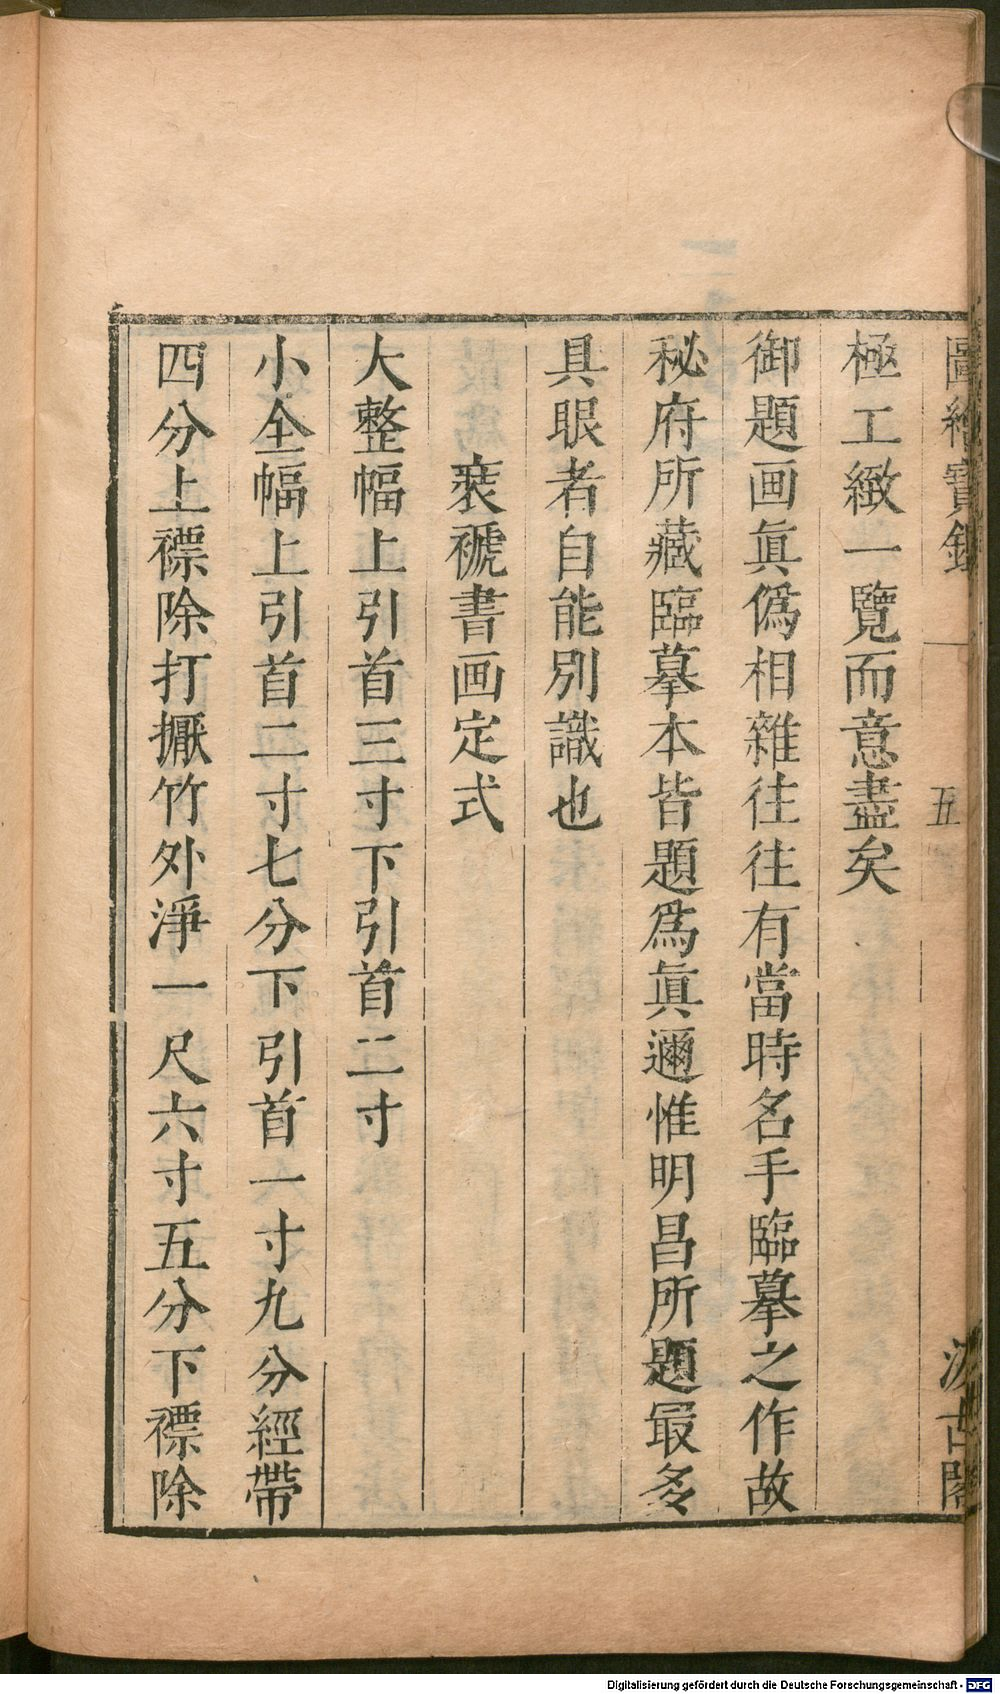 圖繪寶鑑
五
汲古閣
極工緻一覽而意盡矣
御題画眞僞相雜往往有當時名手臨摹之作故
秘府所藏臨摹本皆題爲眞邇惟明昌所題最多
具眼者自能別識也
裵褫書画定式
大整幅上引首三寸下引首二寸
小全幅上引首二寸七分下引首一寸九分經帶
四分上褾除打擫竹外淨一尺六寸五分下褾除
Digitalisierung gefördert durch die Deutsche Forschungsgemeinschaft - DFG